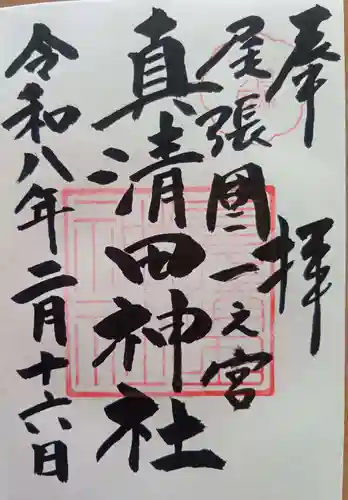 奉拝
尾張國一之宮
真清田神社
令和八年二月十六日